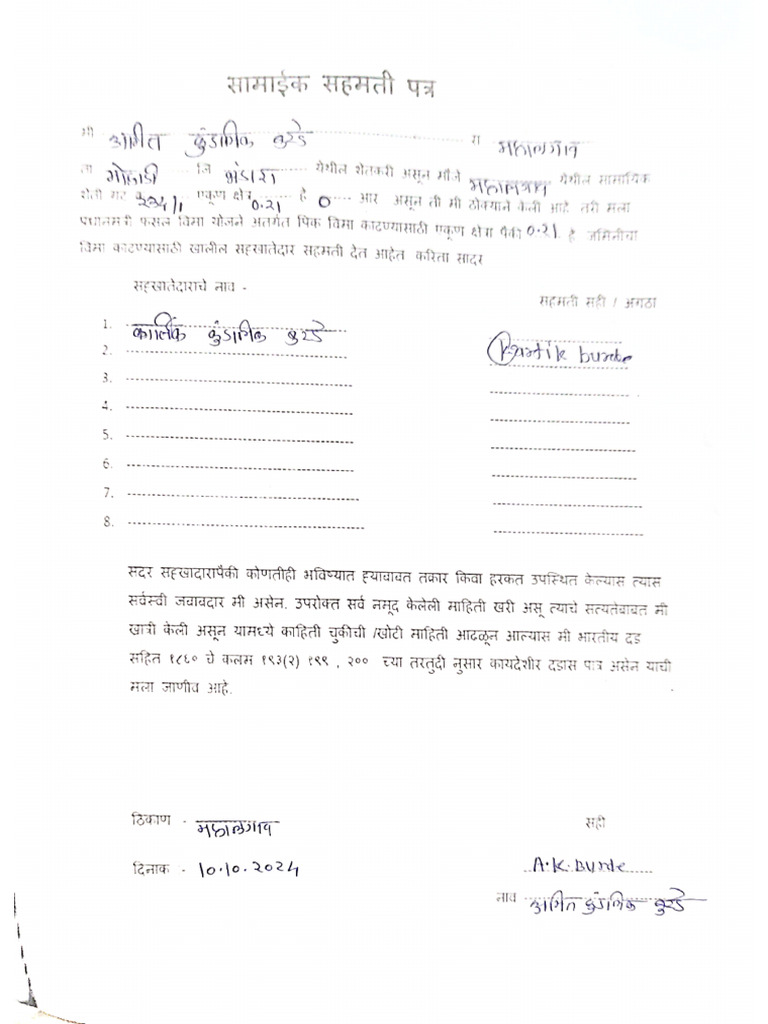 सामाईक सहमती पत्र
मी अमित कुंडलिक बुरडे रा महालगाव
ता मोहाडी जि भंडारा येथील शेतकरी असून मौजे महालगाव येथील सामायिक
शेती गट क्र 224/1 एकूण क्षेत्र 0.21 हे 0 आर असून ती मी ठोक्याने केली आहे तरी मला
प्रधानमंत्री फसल विमा योजने अंतर्गत पिक विमा काढण्यासाठी एकूण क्षेत्रा पैकी 0.21 हे जमिनीचा
विमा काढण्यासाठी खालील सह्खातेदार सहमती देत आहेत करिता सादर
सह्खातेदाराचे नाव -
सहमती सही / अगठा
1. कार्तिक कुंडलिक बुरडे
2. Kartik burde
3.
4.
5.
6.
7.
8.
सदर सह्खादारापैकी कोणतीही भविष्यात ह्याबाबत तक्रार किवा हरकत उपस्थित केल्यास त्यास
सर्वस्वी जवाबदार मी असेन. उपरोक्त सर्व नमूद केलेली माहिती खरी असू त्याचे सत्यतेबाबत मी
खात्री केली असून यामध्ये काहिती चुकीची /खोटी माहिती आढळून आल्यास मी भारतीय दड
सहित १८६० चे कलम १९३(२) १९९ , २०० च्या तरतुदी नुसार कायदेशीर दडास पात्र असेन याची
मला जाणीव आहे.
ठिकाण - महालगाव
सही
दिनाक - 10.10.2024
A.K.Burde
नाव अमित कुंडलिक बुरडे